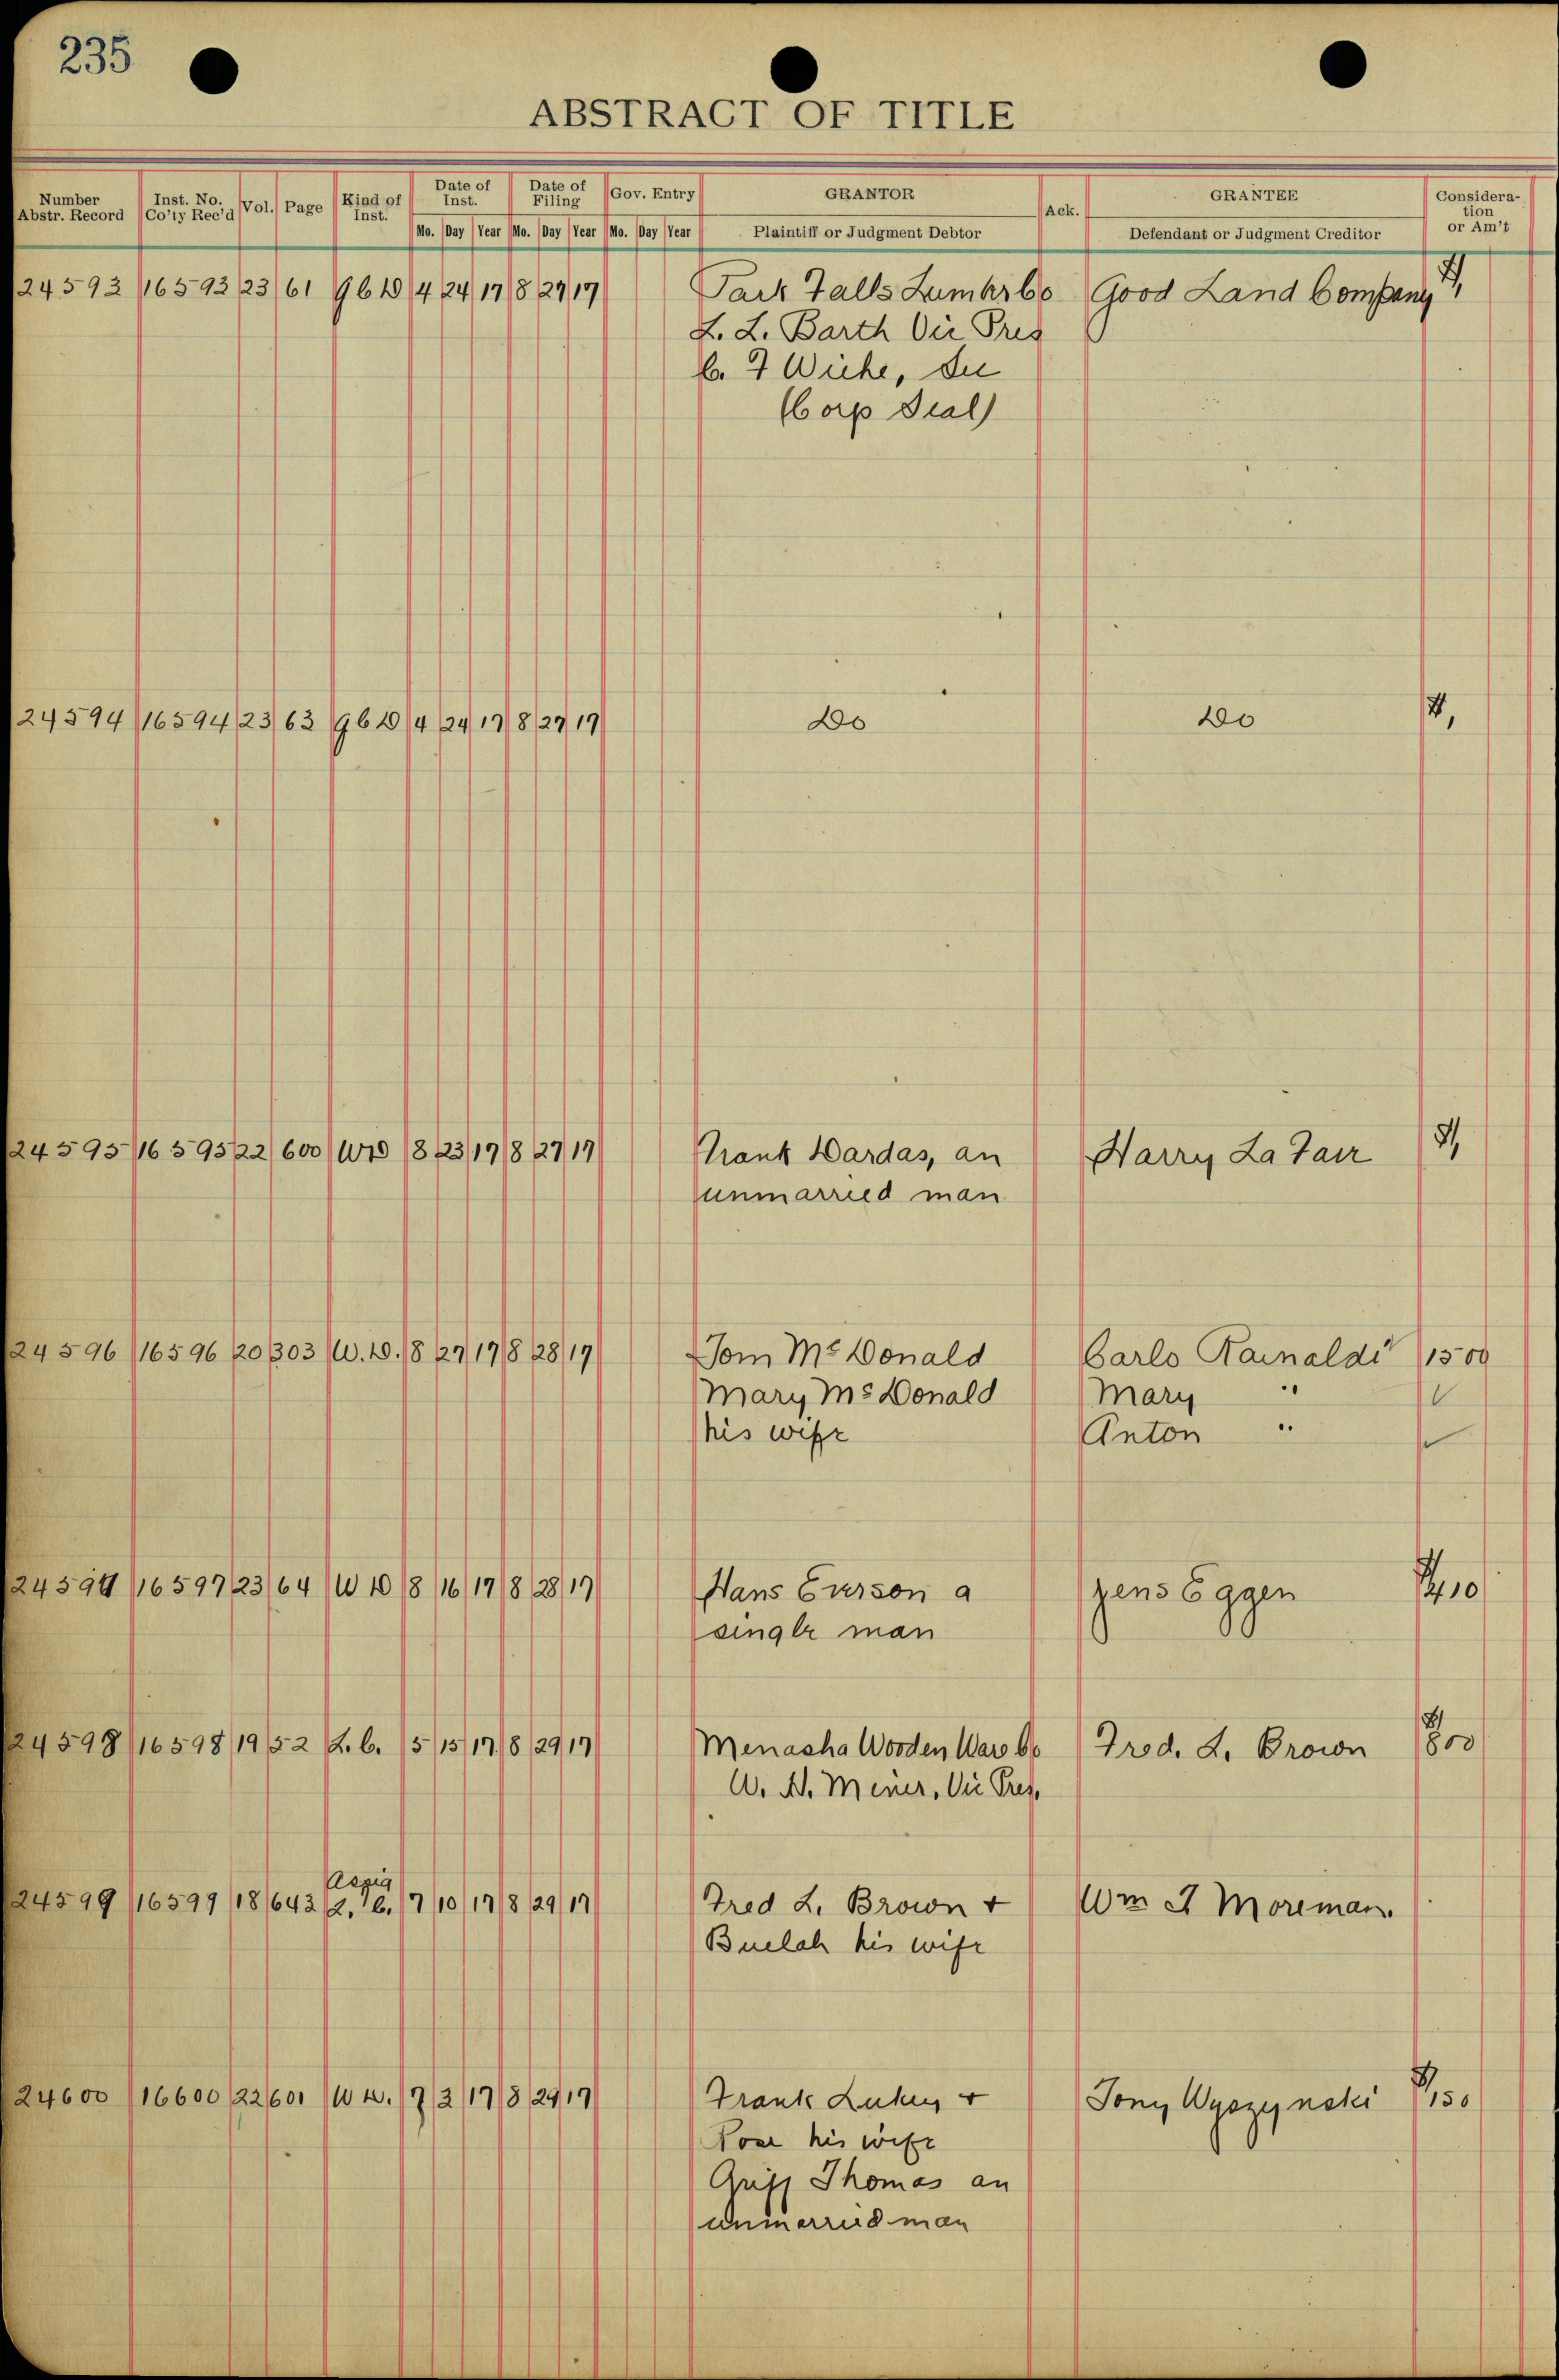 235
ABSTRACT OF TITLE
Number Abstr. Record | Inst. No. Co'ty Rec'd | Vol. | Page | Kind of Inst. | Date of Inst. | Date of Filing | Gov. Entry | GRANTOR | Ack. | GRANTEE | Consideration or Am't
Mo. Day Year Mo. Day Year Mo. Day Year | Plaintiff or Judgment Debtor | Defendant or Judgment Creditor
24593 16593 23 61 4 24 17 8 27 17 Park Falls Lumber Co Good Land Company $1,
L. L. Barth Vic Pres
C. F Wiehe, Sec
(Corp Seal)
24594 16594 23 63 4 24 17 8 27 17 Do Do $1,
24595 16595 22 600 WD 8 23 17 8 27 17 Frank Wardas, an Harry La Fair $1,
unmarried man
24596 16596 20 303 W.D. 8 27 17 8 28 17 Tom McDonald Carlo Rainaldi 1500
Mary McDonald Mary "
his wife Anton "
24597 16597 23 64 WD 8 16 17 8 28 17 Hans Everson a Jens Eggen
single man
24598 16598 19 52 L.C. 5 15 17 8 29 17 Menasha Wooden Ware Co Fred. L. Brown $800
W. H. Miner, Vic Pres,
Assig
24599 16599 18 643 L.C. 7 10 17 8 29 17 Fred L. Brown + Wm J Moreman.
Buelah his wife
24600 16600 22 601 WD. 7 3 17 8 29 17 Frank + Tony Wyszynski $150
Rose his wife
Griff Thomas an
unmarried man